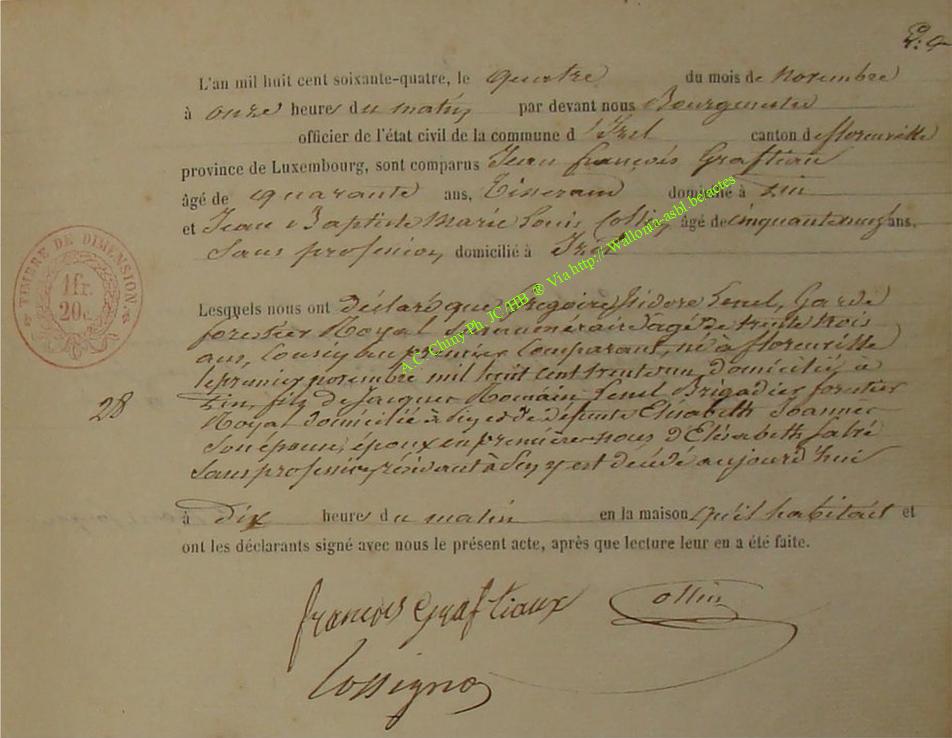 L'an mil huit cent soixante-quatre, le quatre du mois de Novembre
à onze heures du matin, par devant nous Bourgmestre
officier de l'état civil de la commune d'Izel canton de florenville
province de Luxembourg, sont comparus Jean françois Graftiau
âgé de quarante ans, Tisserand domicilié à
et Jean Baptiste Marie Louis Collin, âgé de cinquante neuf ans,
Sans profession, domicilié à Izel
TIMBRE DE DIMENSION
1fr.
20c.
Lesquels nous ont déclaré que Grégoire Isidore Lenel, Garde
forestier Royal Surnuméraire âgé de trente trois
ans, Cousin du premier Comparant, né à florenville
le premier novembre mil huit cent trente un domicilié à
28
fils de Jacques Romain Lenel Brigadier forestier
Royal domicilié à et de défunte Elisabeth Joannes
Son épouse, époux en premières noces d'Elisabeth
Sans profession, résidant à est décédé aujourd'hui
à dix heures du matin en la maison qu'il habitait et
ont les déclarants signé avec nous le présent acte, après que lecture leur en a été faite.
françois Graftiaux Collin
Rossignon
A C Chiny Ph JC HB ® Via http:// Wallonia-asbl.be/actes